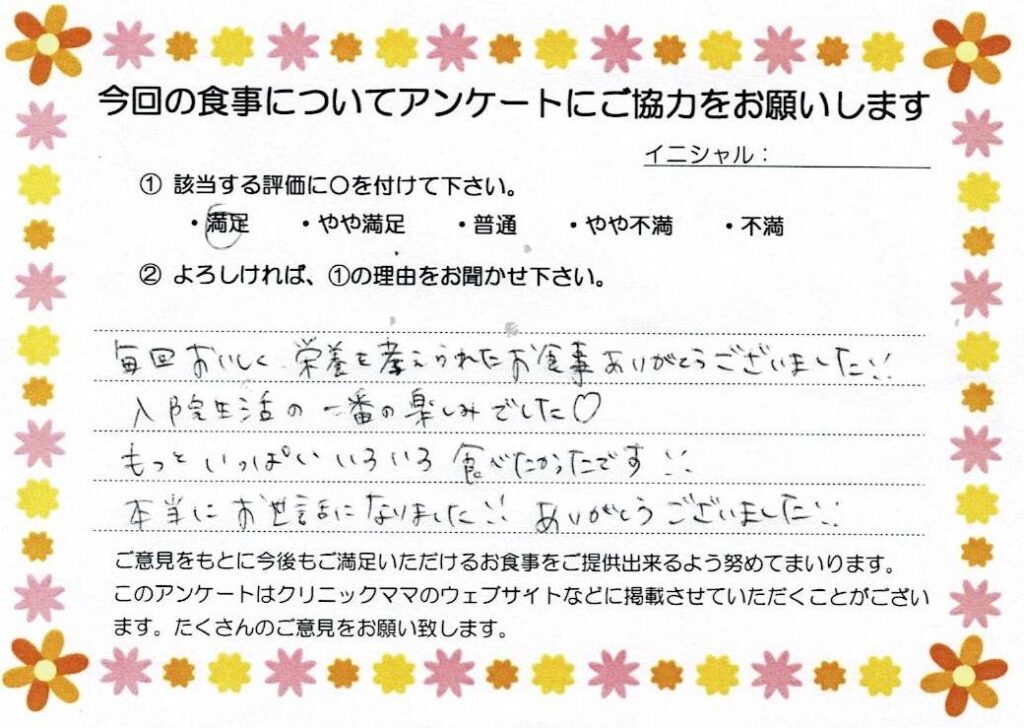 今回の食事についてアンケートにご協力をお願いします
イニシャル：
① 該当する評価に〇を付けて下さい。
・満足 ・やや満足 ・普通 ・やや不満 ・不満
② よろしければ、①の理由をお聞かせ下さい。
毎回おいしく、栄養を考えられたお食事ありがとうございました!!
入院生活の一番の楽しみでした♡
もっといっぱいいろいろ食べたかったです!!
本当にお世話になりました!! ありがとうございました!!
ご意見をもとに今後もご満足いただけるお食事をご提供出来るよう努めてまいります。
このアンケートはクリニックママのウェブサイトなどに掲載させていただくことがござい
ます。たくさんのご意見をお願い致します。